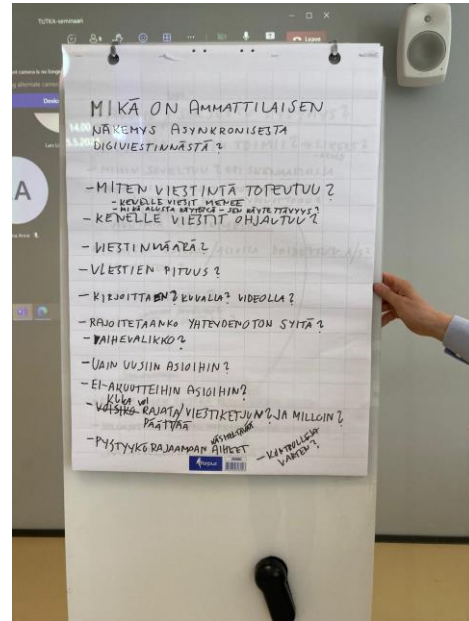 TUTKA-seminaari
Lapse
MIKÄ ON AMMATTILAISEN
NÄKEMYS ASYNKRONISESTA
DIGIVIESTINNÄSTÄ?
- MITEN VIESTINTÄ TOTEUTUU?
- KENELLE VIESTIT MENEE
- MIKÄ ALUSTA KÄYTÖSSÄ - SEN KÄYTETTÄVYYS?
- KENELLE VIESTIT OHJAUTUU?
- VIESTINMÄÄRÄ?
- VIESTIEN PITUUS?
- KIRJOITTAEN? KUVALLA? VIDEOLLA?
- RAJOITETAANKO YHTEYDENOTON SYITÄ?
- AIHEVALIKKO?
- VAIN UUSIIN ASIOIHIN?
- EI-AKUUTTEIHIN ASIOIHIN?
KUKA VOI
- VOISIKO RAJATA/VIESTIKETJUN? JA MILLOIN?
PÄÄTTÄÄ
- PYSTYYKÖ RAJAAMAAN AIHEET
- KONTROLLEJA
VARTEN?
14.00
A